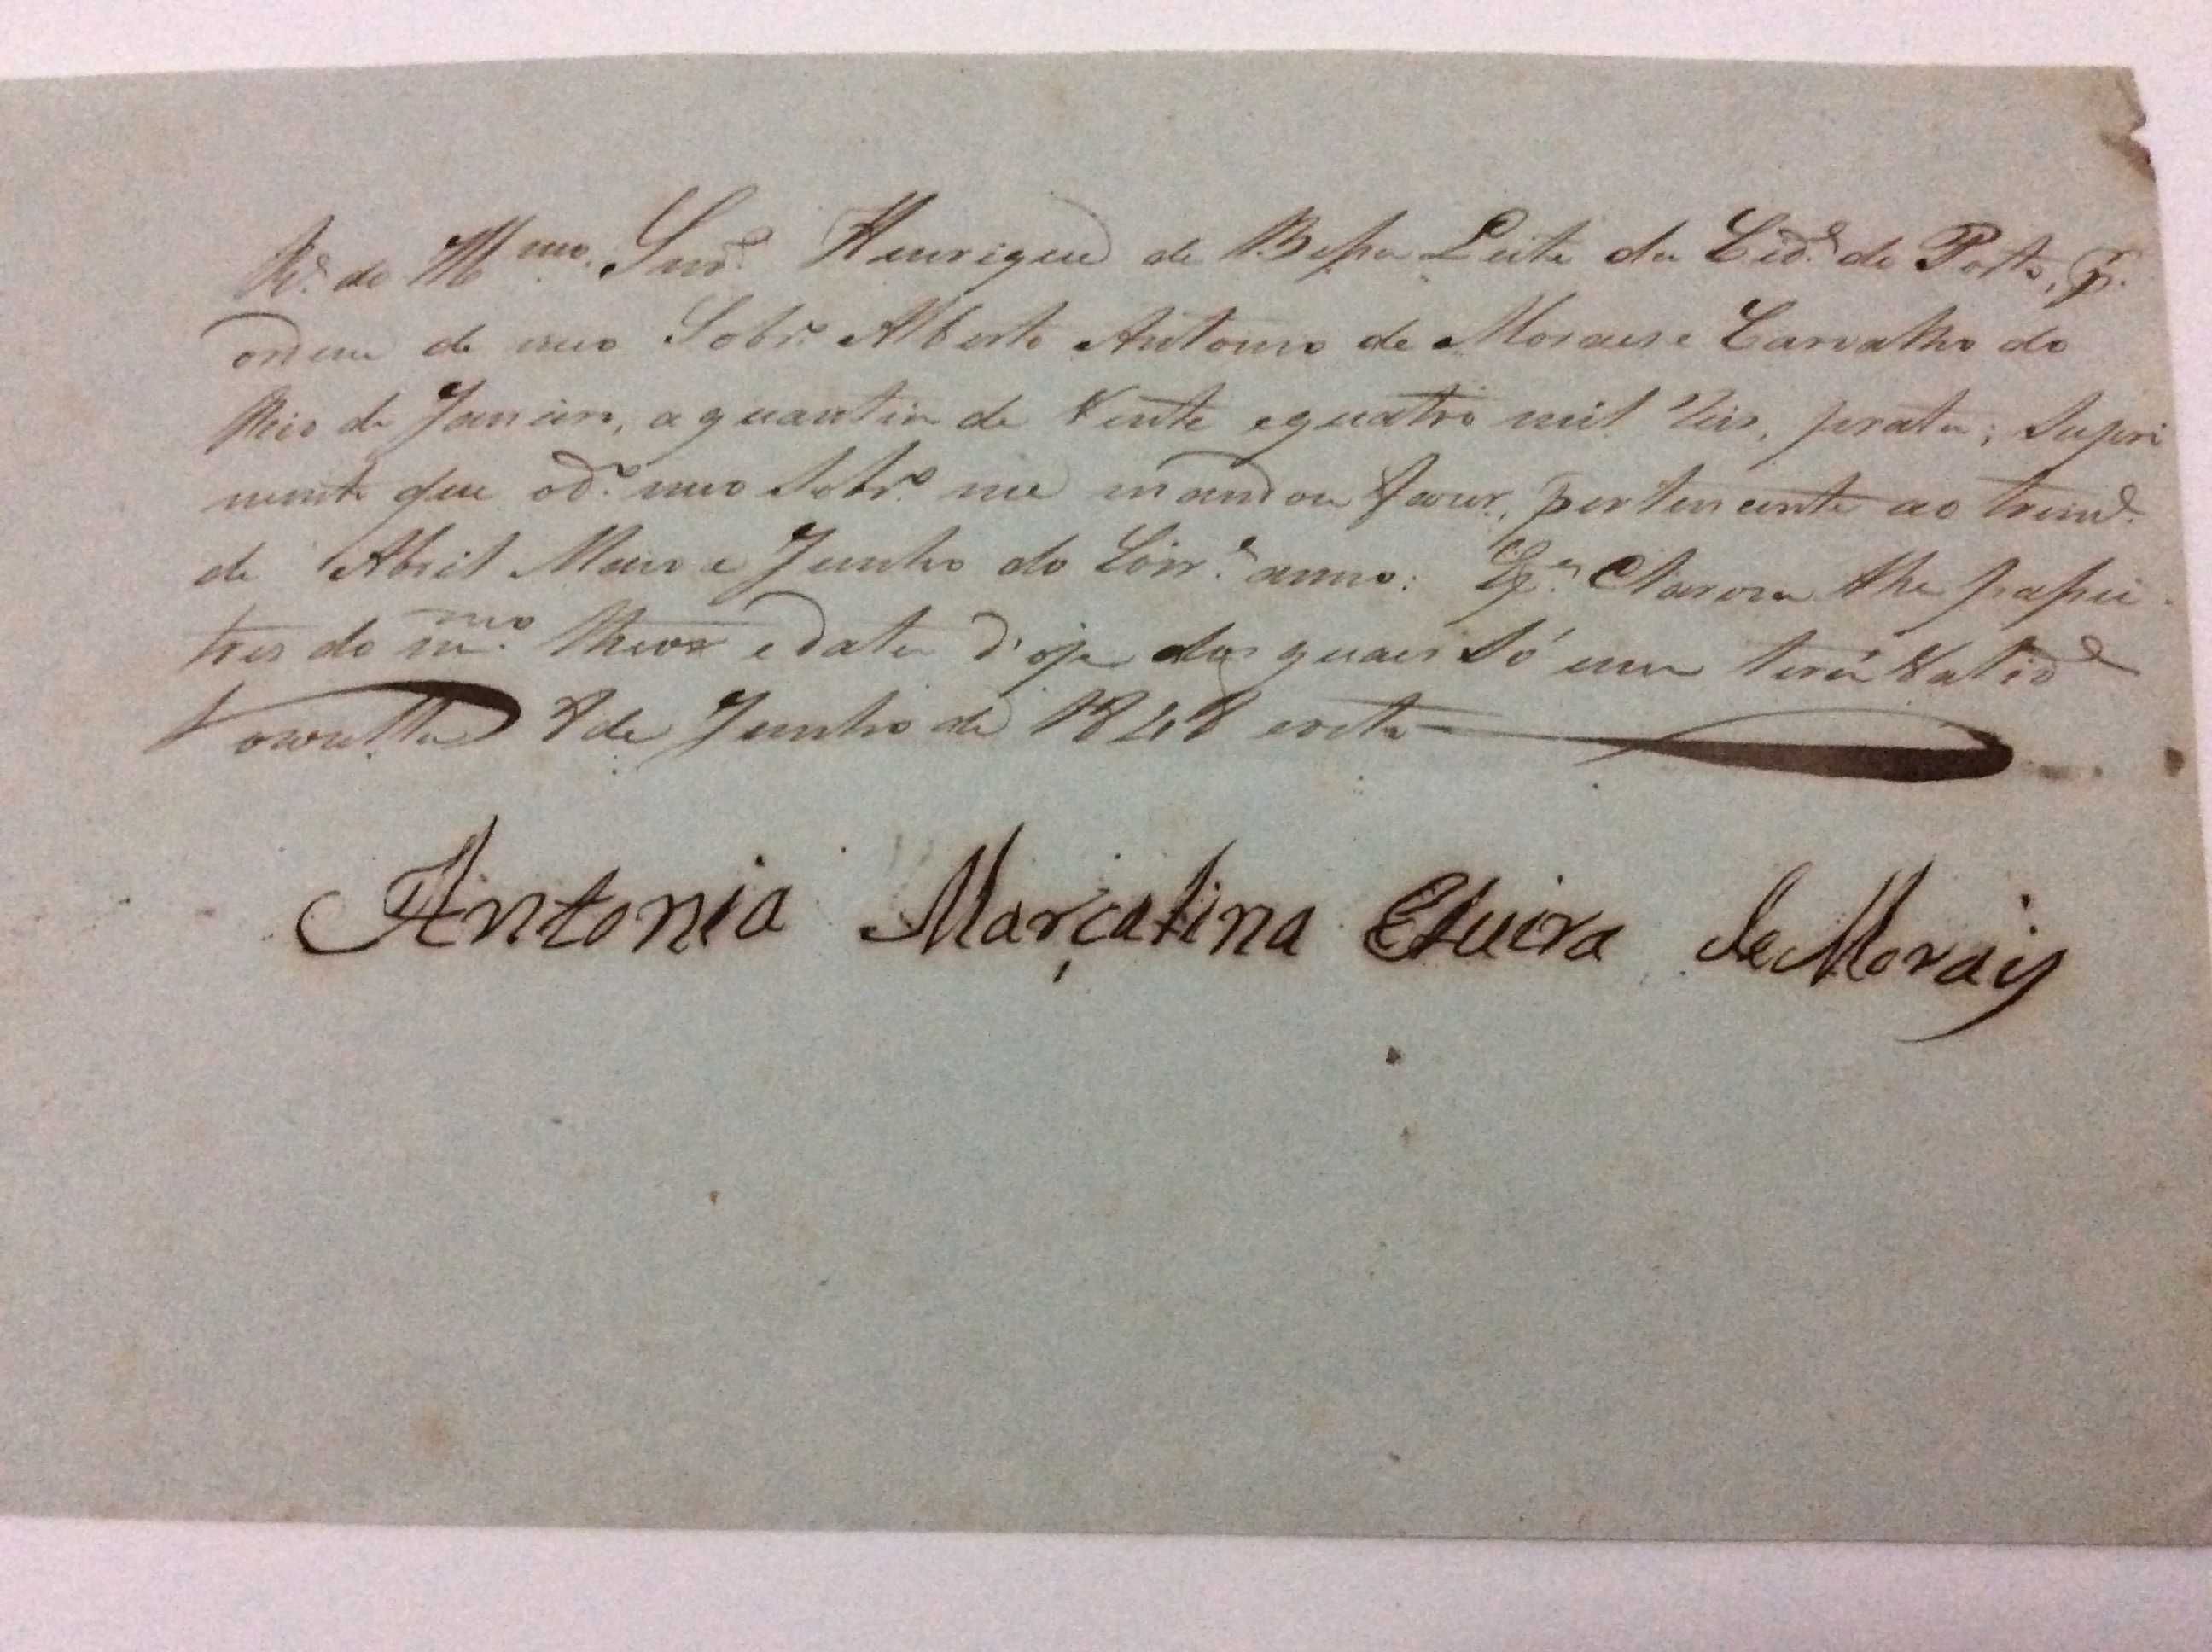 R.e do Ill.mo Snr. Henrique de Bessa Leite da Cid.e do Porto, p.
ordem de meo Sobr.o Alberto Antonio de Moraes e Carvalho do
Rio de Janeiro, a quantia de Vinte e quatro mil reis, prata; Supri
mento que o d.o meo Sobr.o me mandou fazer, pertencente ao trim.e
de Abril Maio e Junho do Corr.e anno: E p.r Clareza lhe passei
tres do m.mo theor e data d'oje dos quais Só um terá Valid.e
8 de Junho de 1848 oito
Antonia Marçalina de Morais